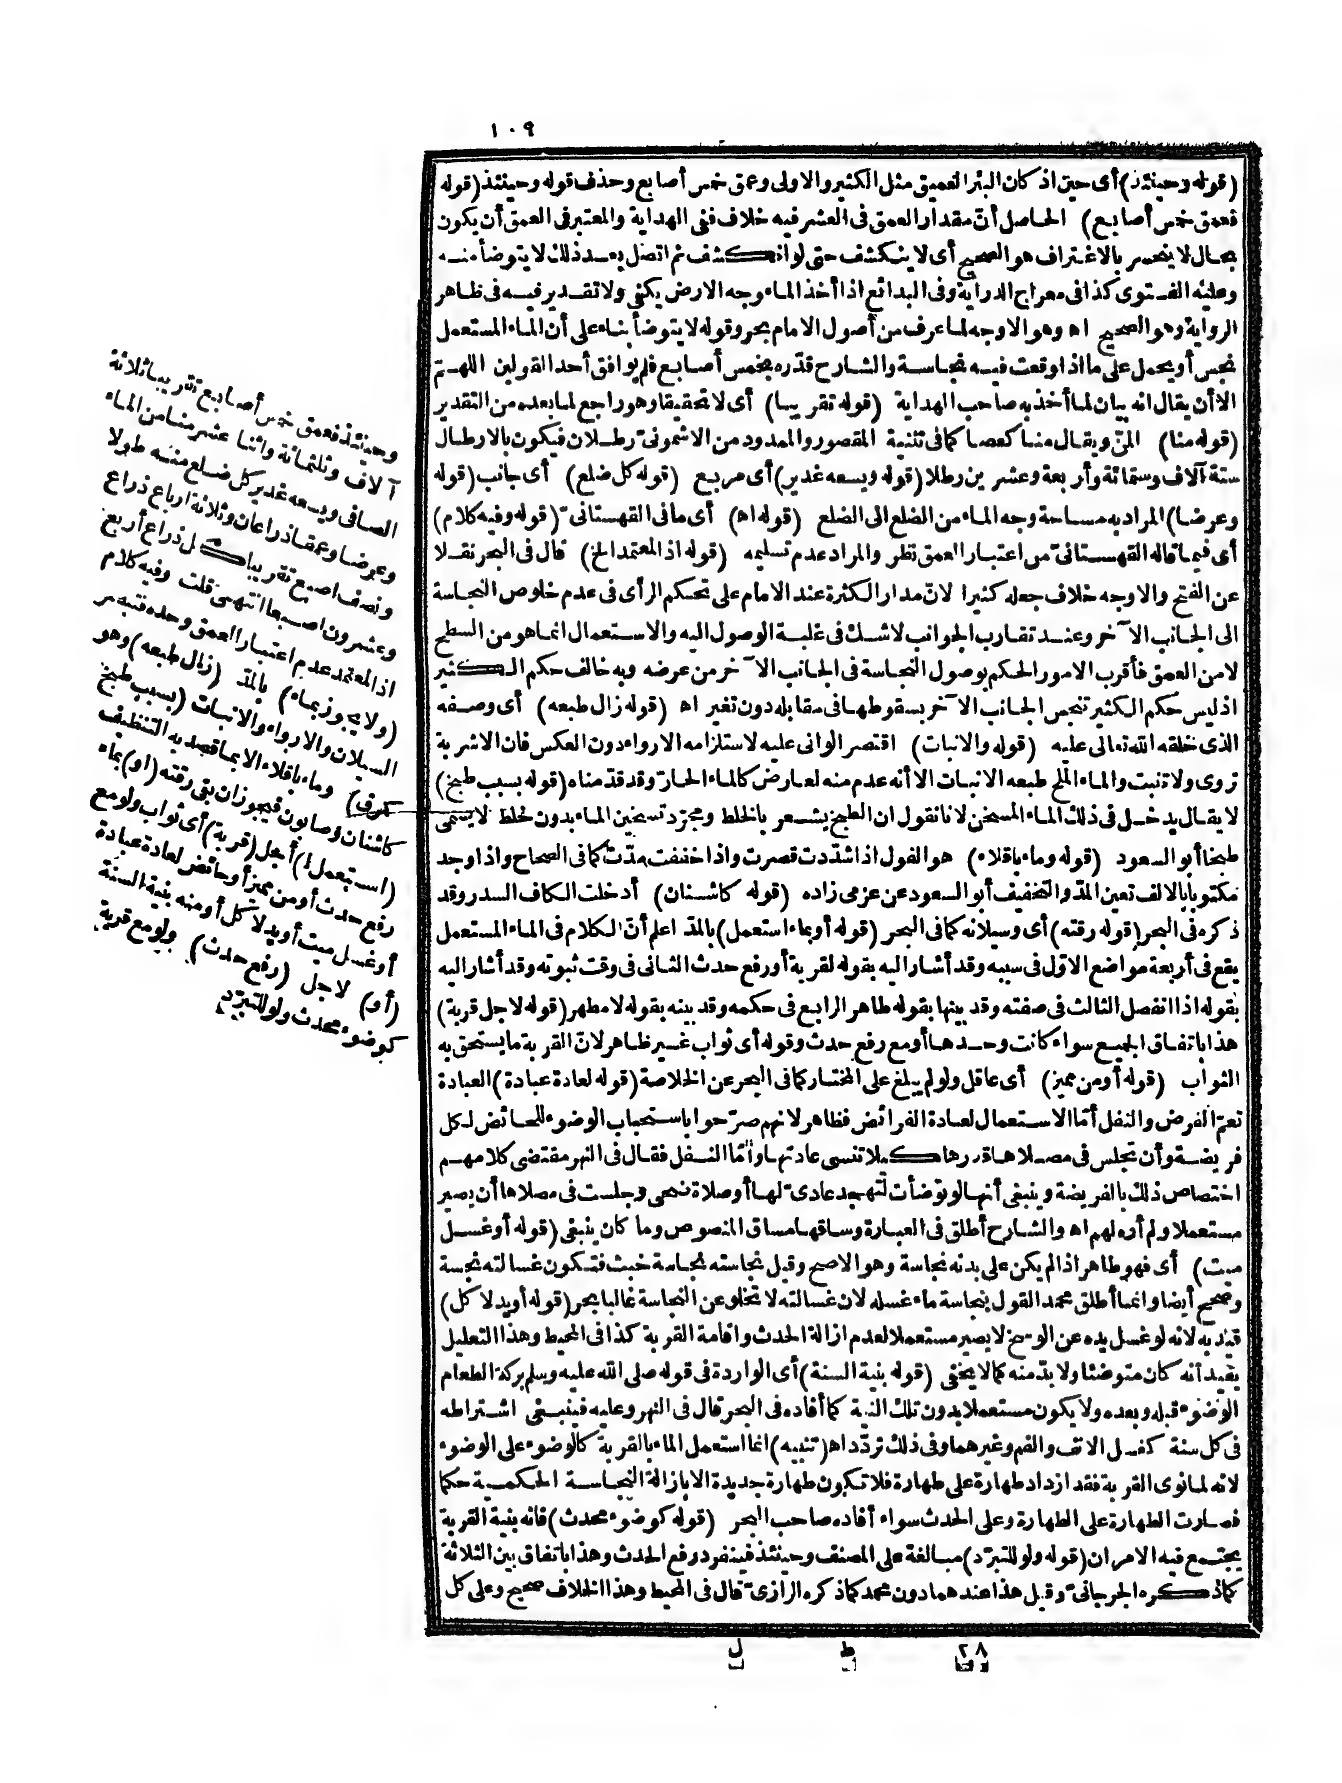 ١٠٩
(قوله وحينئذ) أى حين اذ كان البئر العميق مثل الكثير والاولى وعمق خمس أصابع وحذف قوله وحينئذ (قوله
فعمق خمس أصابع) الحاصل أنّ مقدار العمق فى العشر فيه خلاف ففى الهداية والمعتبر فى العمق أن يكون
بحال لا ينحسر بالاغتراف هو الصحيح أى لا ينكشف حتى لو انكشف ثم اتصل بعد ذلك لا يتوضأ منه
وعليه الفتوى كذا فى معراج الدراية وفى البدائع اذا أخذ الماء وجه الارض يكفى ولا تقدير فيه فى ظاهر
الرواية وهو الصحيح اه وهو الاوجه لما عرف من أصول الامام بحر وقوله لا يتوضأ بناء على أن الماء المستعمل
نجس أو يحمل على ما اذا وقعت فيه نجاسة والشارح قدّره بخمس أصابع فلم يوافق أحد القولين اللهمّ
الا أن يقال انه بيان لما أخذ به صاحب الهداية (قوله تقريبا) أى لا تحقيقا وهو راجع لما بعده من التقدير
(قوله منا) المنّ ويقال منا كعصا كما فى تثنية المقصور والممدود من الاشمونىّ رطلان فيكون بالارطال
ستة آلاف وستمائة وأربعة وعشرين رطلا (قوله ويسعه غدير) أى مربع (قوله كل ضلع) أى جانب (قوله
وعرضا) المراد به مساحة وجه الماء من الضلع الى الضلع (قوله اه) أى ما فى القهستانىّ (قوله وفيه كلام)
أى فيما قاله القهستانىّ من اعتبار العمق نظر والمراد عدم تسليمه (قوله اذ المعتمد الخ) قال فى البحر نقلا
عن الفتح والاوجه خلاف جعله كثيرا لانّ مدار الكثرة عند الامام على تحكيم الرأى فى عدم خلوص النجاسة
الى الجانب الآخر وعند تقارب الجوانب لاشك فى غلبة الوصول اليه والاستعمال انما هو من السطح
لا من العمق فأقرب الامور الحكم بوصول النجاسة فى الجانب الآخر من عرضه وبه خالف حكم الكثير
اذ ليس حكم الكثير تنجس الجانب الآخر بسقوطها فى مقابله دون تغير اه (قوله زال طبعه) أى وصفه
الذى خلقه الله تعالى عليه (قوله والانبات) اقتصر الوانى عليه لاستلزامه الارواء دون العكس فان الاشربة
تروى ولا تنبت والماء الملح طبعه الانبات الا أنه عدم منه لعارض كالماء الحارّ وقد قدّمناه (قوله بسبب طبخ)
لا يقال يدخل فى ذلك الماء المسخن لانا نقول ان الطبخ يشعر بالخلط ومجرّد تسخين الماء بدون خلط لا يسمى
طبخا أبو السعود (قوله وماء باقلاء) هو الفول اذا شدّدت قصرت واذا خففت مدّت كما فى الصحاح واذا وجد
مكتوبا بالالف تعين المدّ والتخفيف أبو السعود عن عزمى زاده (قوله كاشنان) أدخلت الكاف السدر وقد
ذكره فى البحر (قوله رقته) أى وسيلانه كما فى البحر (قوله أو بماء استعمل) بالمدّ اعلم أنّ الكلام فى الماء المستعمل
يقع فى أربعة مواضع الاوّل فى سببه وقد أشار اليه بقوله لقربة أو رفع حدث الثانى فى وقت ثبوته وقد أشار اليه
بقوله اذا انفصل الثالث فى صفته وقد بينها بقوله طاهر الرابع فى حكمه وقد بينه بقوله لا مطهر (قوله لاجل قربة)
هذا باتفاق الجميع سواء كانت وحدها أو مع رفع حدث وقوله أى ثواب غير ظاهر لانّ القربة ما يستحق به
الثواب (قوله أو من مميز) أى عاقل ولو لم يبلغ على المختار كما فى البحر عن الخلاصة (قوله لعادة عبادة) العبادة
تعمّ الفرض والنفل أمّا الاستعمال لعادة الفرائض فظاهر لانهم صرّحوا باستحباب الوضوء للحائض لكل
فريضة وأن تجلس فى مصلاها قدرها كيلا تنسى عادتها وأمّا النفل فقال فى النهر مقتضى كلامهم
اختصاص ذلك بالفريضة وينبغى أنها لو توضأت لتهجد عادىّ لها أو صلاة ضحى وجلست فى مصلاها أن يصير
مستعملا ولم أره لهم اه والشارح أطلق فى العبارة وساقها مساق المنصوص وما كان ينبغى (قوله أو غسل
ميت) أى فهو طاهر اذا لم يكن على بدنه نجاسة وهو الاصح وقيل نجاسته نجاسة خبث فتكون غسالته نجسة
وصحح أيضا وانما أطلق محمد القول بنجاسة ماء غسله لان غسالته لا تخلو عن النجاسة غالبا بحر (قوله أو يد لاكل)
قيد به لانه لو غسل يده عن الوسخ لا يصير مستعملا لعدم ازالة الحدث واقامة القربة كذا فى المحيط وهذا التعليل
يفيد أنه كان متوضئا ولا بدّ منه كما لا يخفى (قوله بنية السنة) أى الواردة فى قوله صلى الله عليه وسلم بركة الطعام
الوضوء قبله وبعده ولا يكون مستعملا بدون تلك النية كما أفاده فى البحر قال فى النهر وعليه فينبغى اشتراطه
فى كل سنة كغسل الانف والفم وغيرهما وفى ذلك تردّد اه (تنبيه) انما استعمل الماء بالقربة كالوضوء على الوضوء
لانه لما نوى القربة فقد ازداد طهارة على طهارة فلا تكون طهارة جديدة الا بازالة النجاسة الحكمية حكما
فصارت الطهارة على الطهارة وعلى الحدث سواء أفاده صاحب البحر (قوله كوضوء محدث) فانه بنية القربة
يجتمع فيه الامران (قوله ولو للتبرّد) مبالغة على المصنف وحينئذ فينفرد رفع الحدث وهذا باتفاق بين الثلاثة
كما ذكره الجرجانىّ وقيل هذا عندهما دون محمد كما ذكره الرازىّ قال فى المحيط وهذا الخلاف صحيح وعلى كل
وحينئذ فعمق خمس أصابع تقريبا ثلاثة
آلاف وثلثمائة واثنا عشر منا من الماء
الصافى ويسعه غدير كل ضلع منه طولا
وعرضا وعمقا ذراعان وثلاثة أرباع ذراع
ونصف اصبع تقريبا كل ذراع أربع
وعشرون اصبعا انتهى قلت وفيه كلام
اذ المعتمد عدم اعتبار العمق وحده فتبصر
(ولا يجوز بماء) بالمدّ (زال طبعه) وهو
السيلان والارواء والانبات (بسبب طبخ
كمرق) وماء باقلاء الا بما قصد به التنظيف
كاشنان وصابون فيجوز ان بقى رقته (أو) بماء
(استعمل ا) أجل (قربة) أى ثواب ولو مع
رفع حدث أو من مميز أو حائض لعادة عبادة
أو غسل ميت أو يد لاكل أو منه بنية السنة
(أو) لاجل (رفع حدث) ولو مع قربة
كوضوء محدث ولو للتبرّد
٢٨ ط ل